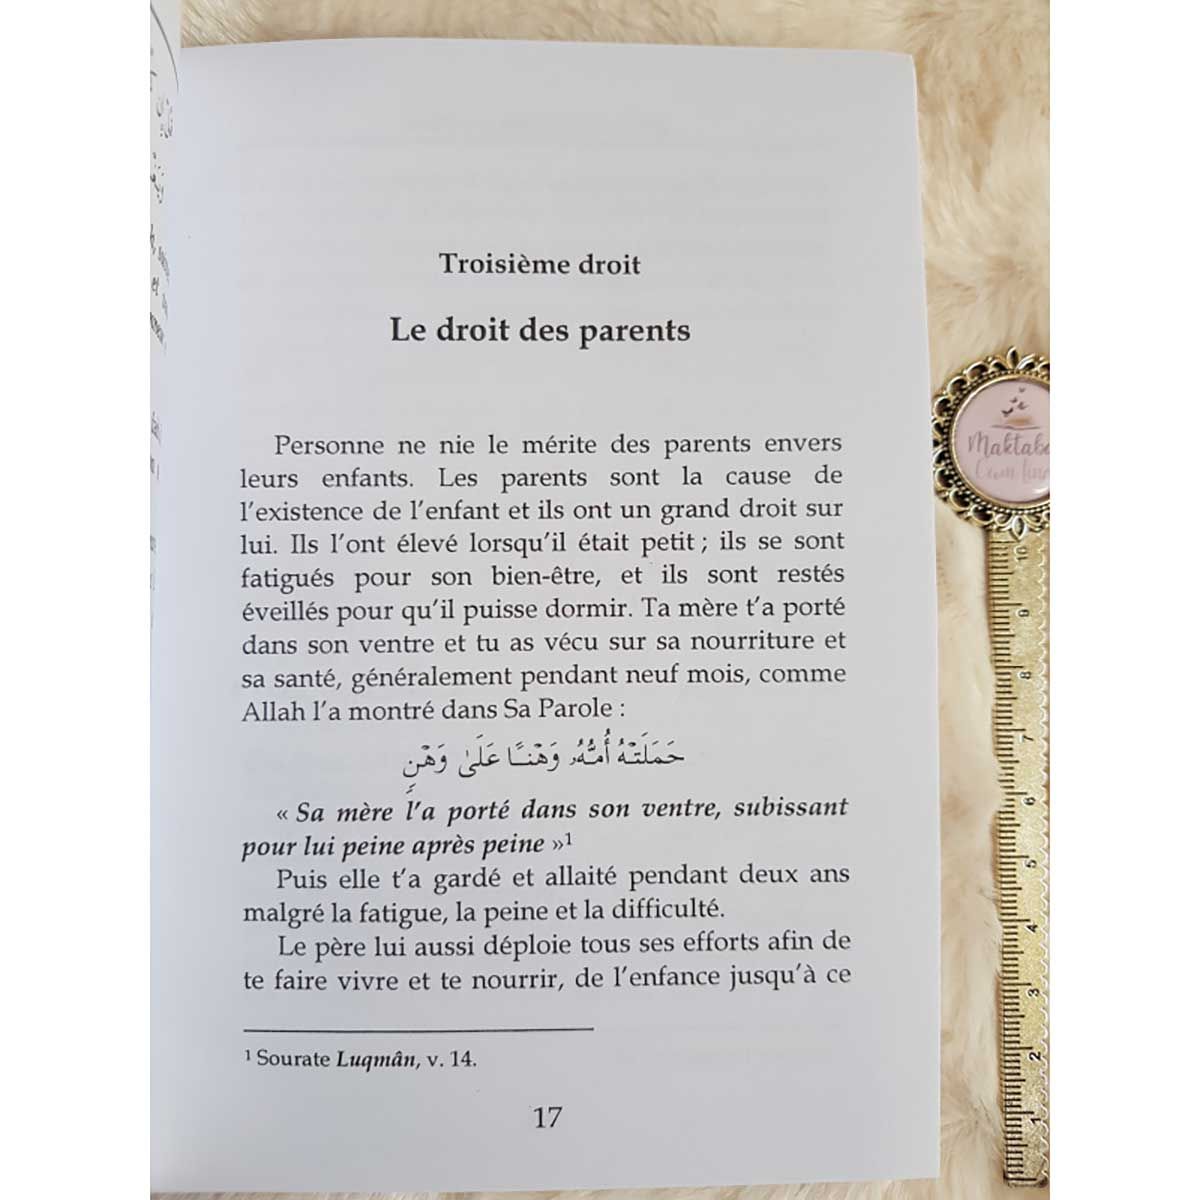 Troisième droit
Le droit des parents
Personne ne nie le mérite des parents envers
leurs enfants. Les parents sont la cause de
l'existence de l'enfant et ils ont un grand droit sur
lui. Ils l'ont élevé lorsqu'il était petit ; ils se sont
fatigués pour son bien-être, et ils sont restés
éveillés pour qu'il puisse dormir. Ta mère t'a porté
dans son ventre et tu as vécu sur sa nourriture et
sa santé, généralement pendant neuf mois, comme
Allah l'a montré dans Sa Parole :
حَمَلَتْهُ أُمُّهُۥ وَهْنًا عَلَىٰ وَهْنٍ
« Sa mère l'a porté dans son ventre, subissant
pour lui peine après peine »¹
Puis elle t'a gardé et allaité pendant deux ans
malgré la fatigue, la peine et la difficulté.
Le père lui aussi déploie tous ses efforts afin de
te faire vivre et te nourrir, de l'enfance jusqu'à ce
¹ Sourate Luqmân, v. 14.
17
10
9
8
7
6
5
4
3
2
1